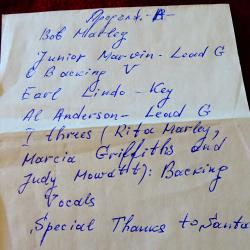 Bob Marley
Junior Marwin - Lead G
& Backing V
Earl Lindo - Key
Al Anderson - Lead G
I threes (Rita Marley,
Marcia Griffiths and
Judy Mowatt): Backing
Vocals
Special Thanks to Santa